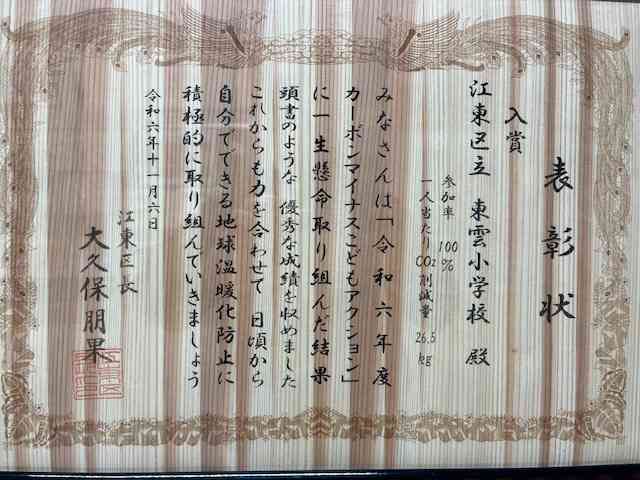 表彰状
入賞
江東区立 東雲小学校 殿
参加率 100%
一人当たりCO2削減量 26.5kg
みなさんは「令和六年度
カーボンマイナスこどもアクション」
に一生懸命取り組んだ結果
頭書のような優秀な成績を収めました
これからも力を合わせて 日頃から
自分でできる地球温暖化防止に
積極的に取り組んでいきましょう
令和六年十一月六日
江東区長
大久保朋果